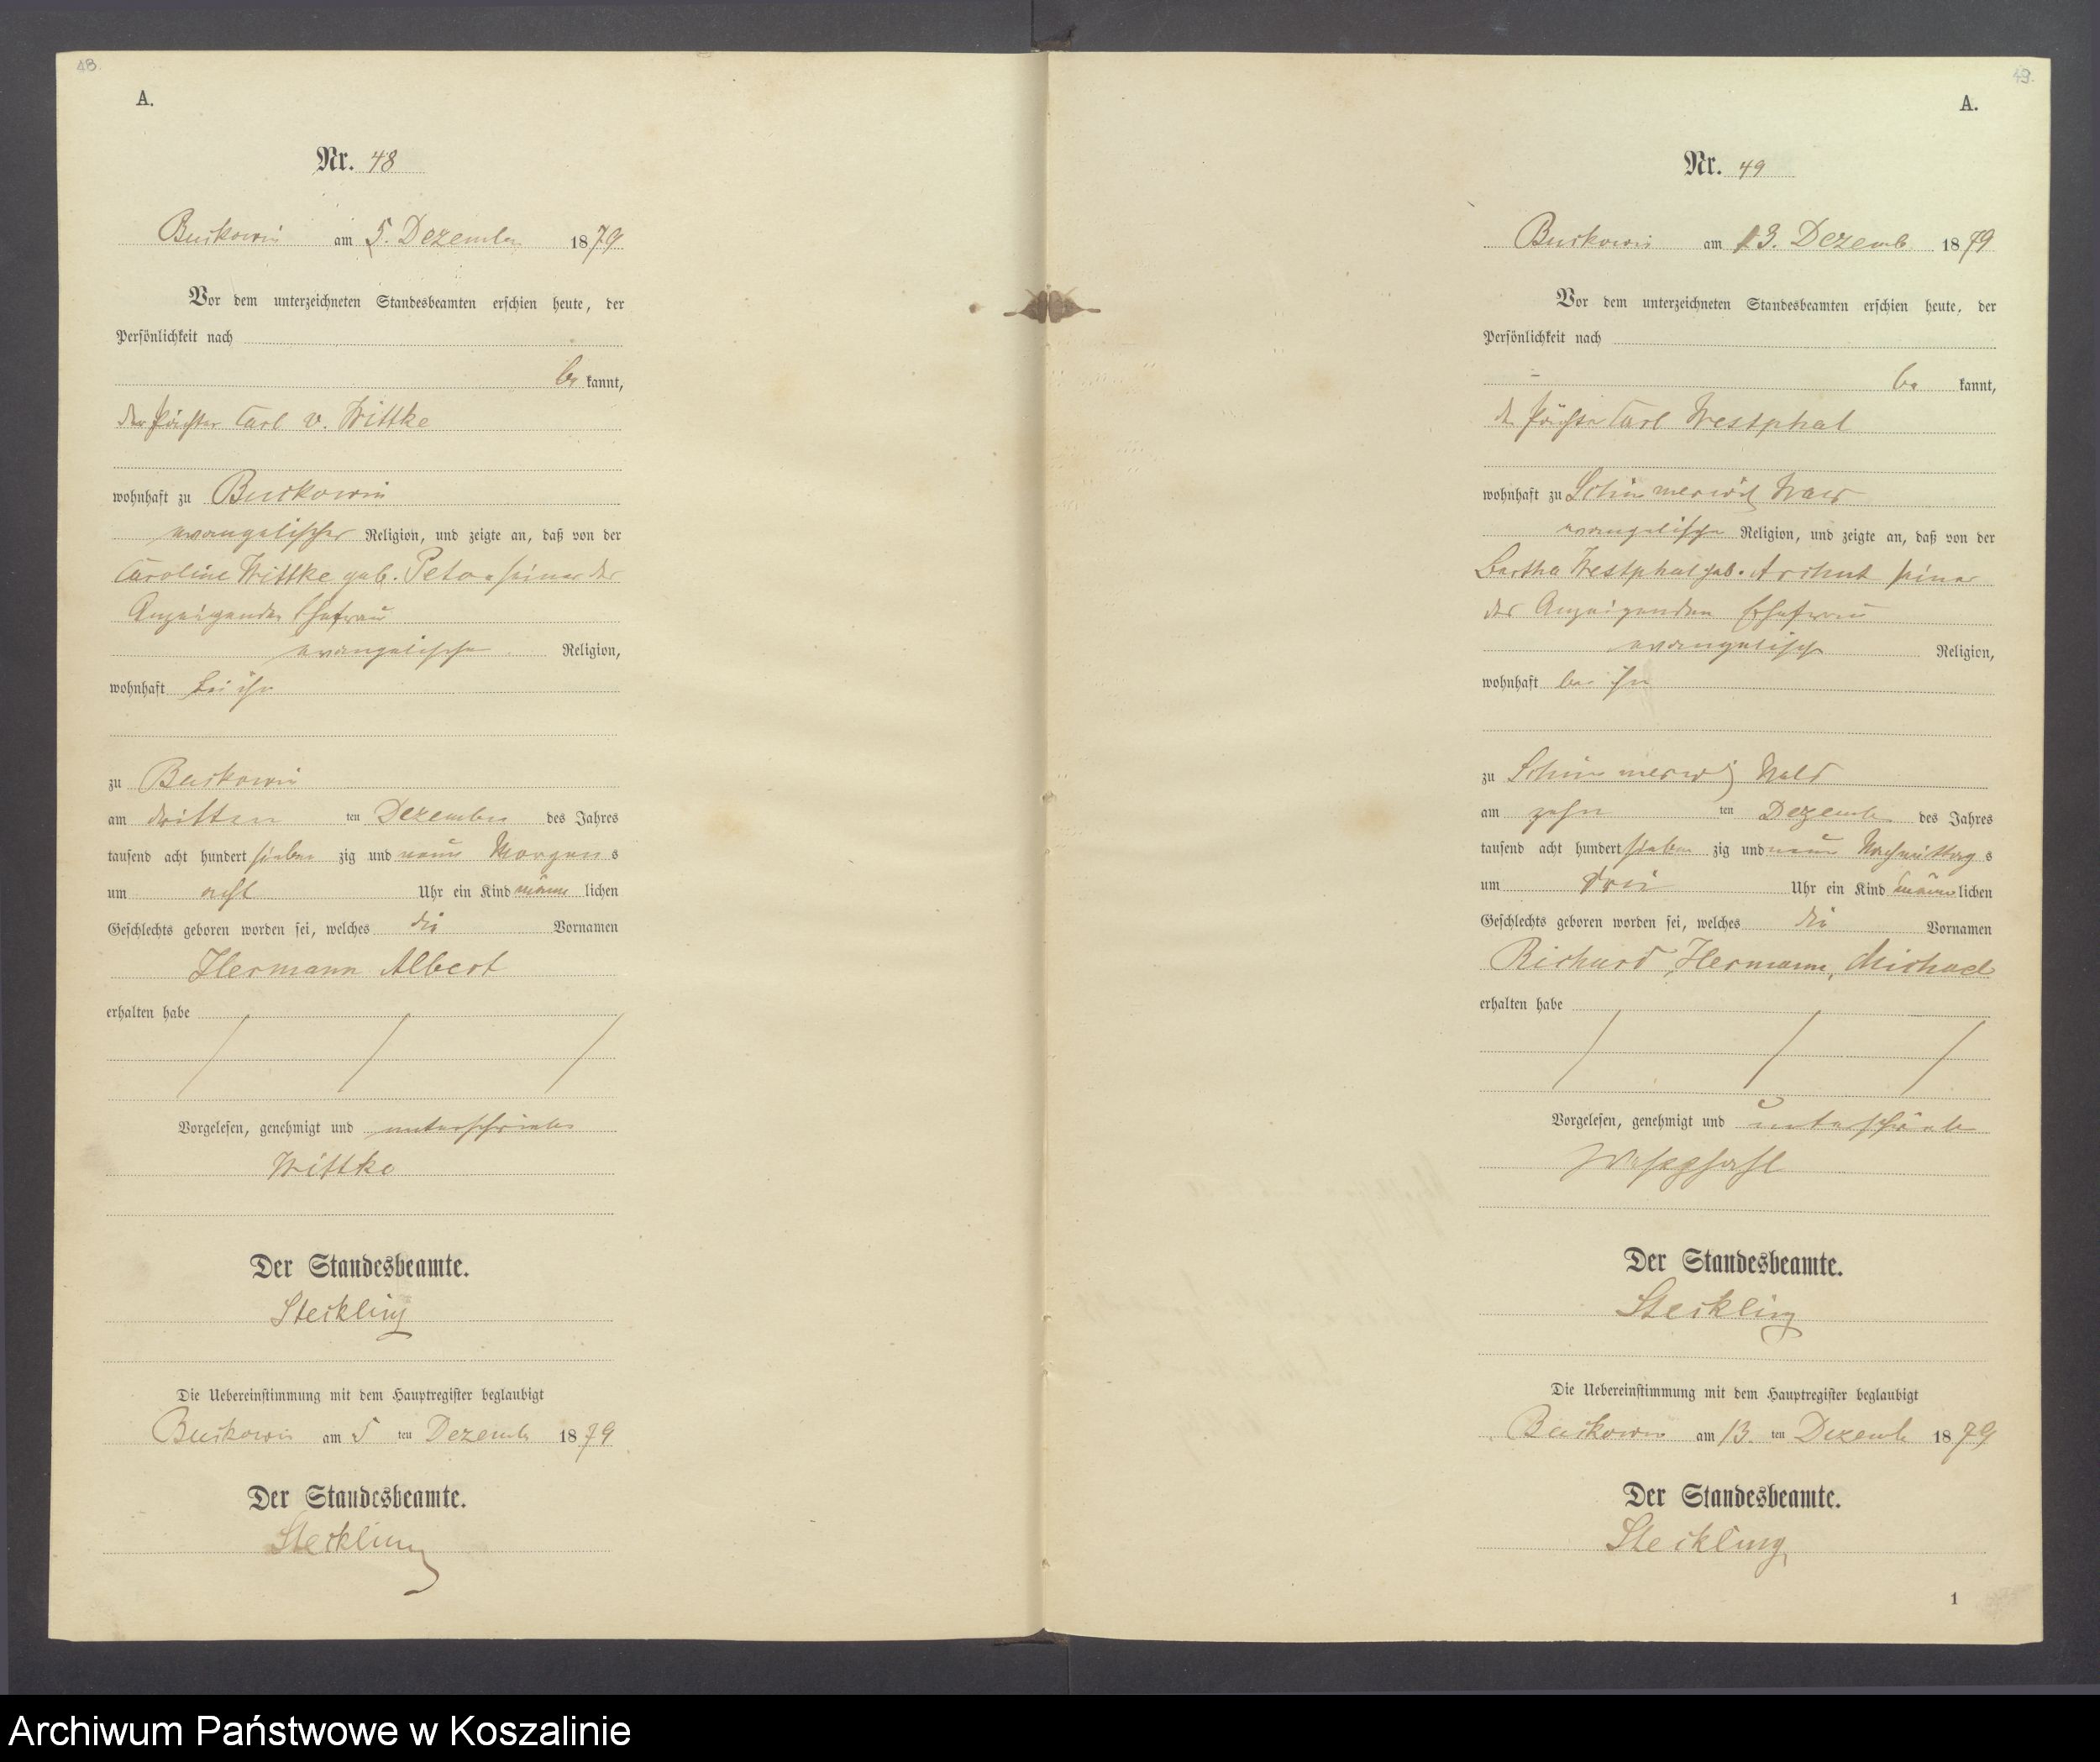 48.
A.
Nr. 48
Buckowin am 5. Dezember 1879
Vor dem unterzeichneten Standesbeamten erschien heute, der
Persönlichkeit nach
be kannt,
der Pächter Carl v. Wittke
wohnhaft zu Buckowin
evangelischer Religion, und zeigte an, daß von der
Caroline Wittke geb. seiner des
Anzeigenden Ehefrau
evangelischer Religion,
wohnhaft bei ihm
zu Buckowin
am dritten ten Dezember des Jahres
tausend acht hundert sieben zig und neun Morgens
um acht Uhr ein Kind männ lichen
Geschlechts geboren worden sei, welches die Vornamen
Hermann Albert
erhalten habe
Vorgelesen, genehmigt und unterschrieben
Wittke
Der Standesbeamte.
Steckling
Die Uebereinstimmung mit dem Hauptregister beglaubigt
Buckowin am 5 ten Dezemb 1879
Der Standesbeamte.
Steckling
49.
A.
Nr. 49
Buckowin am 13. Dezemb 1879
Vor dem unterzeichneten Standesbeamten erschien heute, der
Persönlichkeit nach
be kannt,
der Pächter Carl Westphal
wohnhaft zu Schimmerwitz Wald
evangelischer Religion, und zeigte an, daß von der
Bertha Westphal geb. seiner
des Anzeigenden Ehefrau
evangelisch Religion,
wohnhaft bei ihm
zu Schimmerwitz Wald
am zehn ten Dezember des Jahres
tausend acht hundert sieben zig und neun Nachmittag s
um drei Uhr ein Kind männ lichen
Geschlechts geboren worden sei, welches die Vornamen
Richard, Hermann, Michael
erhalten habe
Vorgelesen, genehmigt und unterschrieben
Westphal
Der Standesbeamte.
Steckling
Die Uebereinstimmung mit dem Hauptregister beglaubigt
Buckowin am 13. ten Dezemb 1879
Der Standesbeamte.
Steckling
1
Archiwum Państwowe w Koszalinie